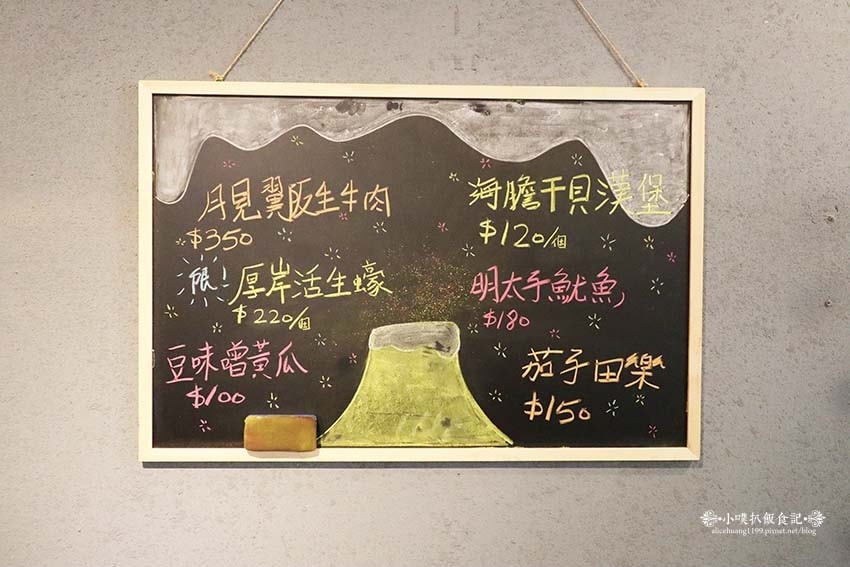 月見翼阪生牛肉
$350
限!
厚岸活生蠔
$220/個
豆味噌黃瓜
$100
海膽干貝漢堡
$120/個
明太子魷魚
$180
茄子田樂
$150
小噗扒飯食記
alicehuang1199.pixnet.net/blog